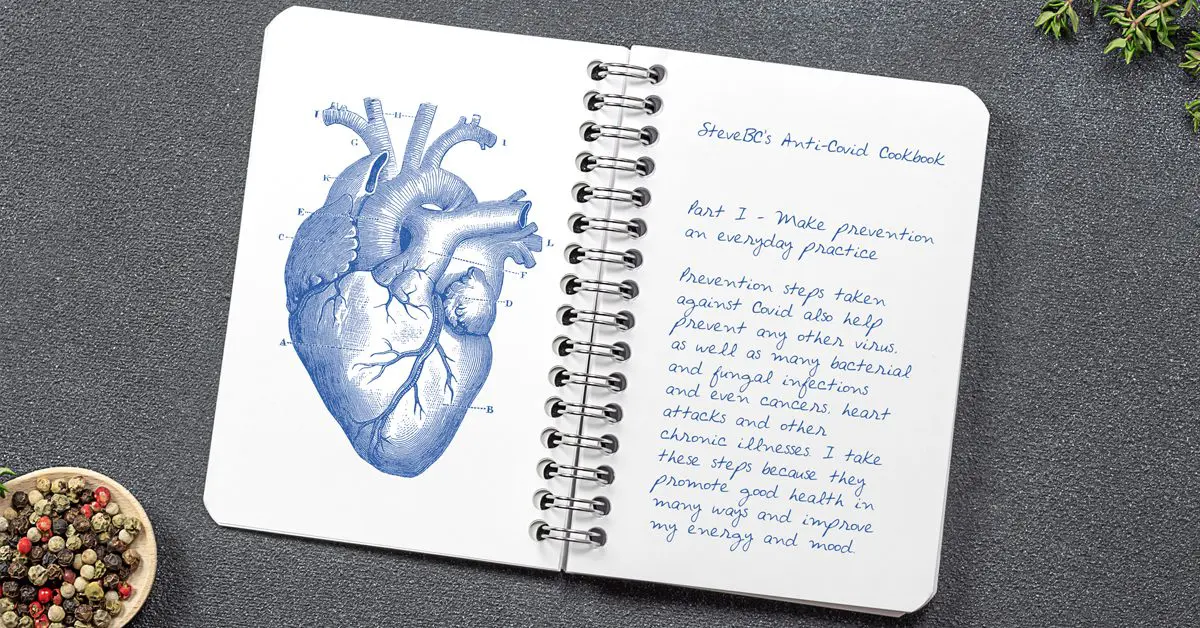 I
H
I
G
K
E
C
L
F
D
A
B
SteveBC's Anti-Covid Cookbook
Part I - Make prevention
an everyday practice
Prevention steps taken
against Covid also help
prevent any other virus,
as well as many bacterial
and fungal infections
and even cancers, heart
attacks and other
chronic illnesses. I take
these steps because they
promote good health in
many ways and improve
my energy and mood.